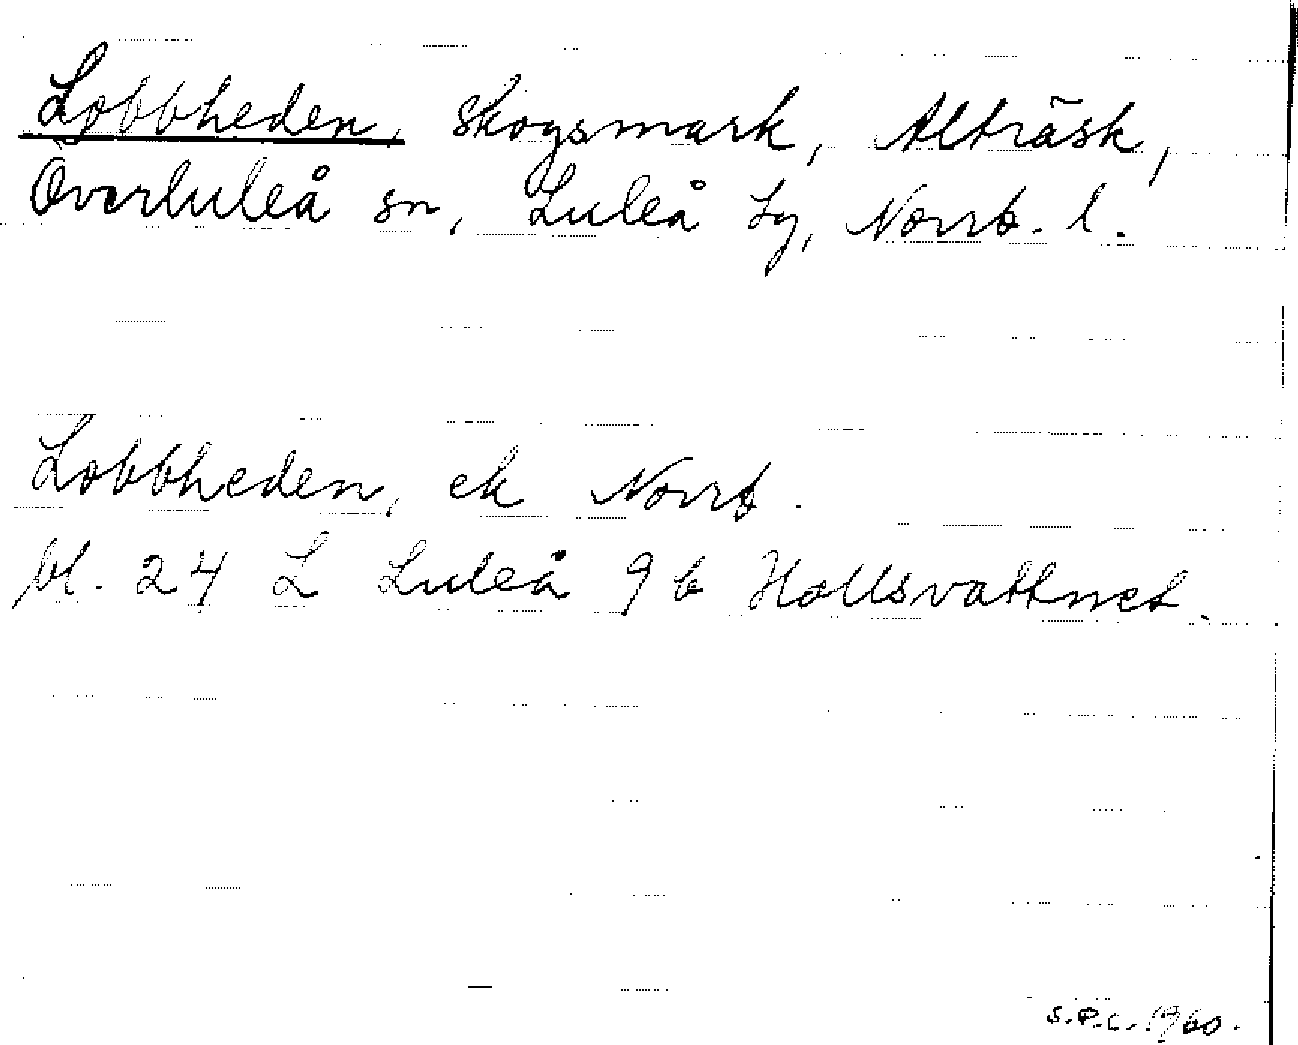 Lobbheden, skogsmark, Alträsk,
Överluleå sn, Luleå tg, Norrb. l.
Lobbheden, ek Norrb.
bl. 24 L Luleå 9 b Hollsvattnet.
S.P.C. 1960.